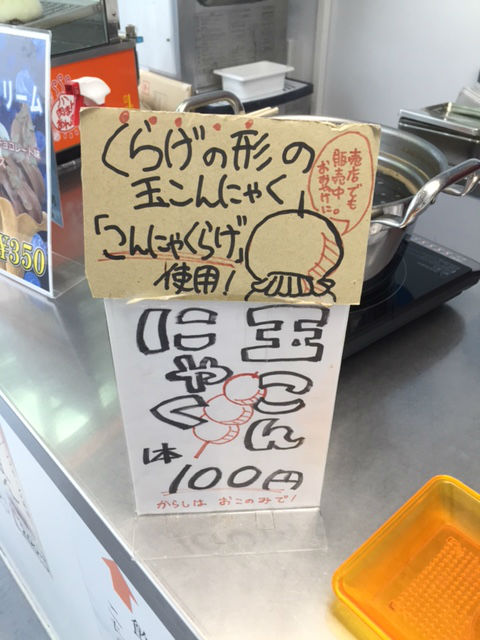 くらげの形の
玉こんにゃく
「こんにゃくらげ」
使用!
売店でも
販売中
おみやげに。
玉こん
にゃく
1本
100円
からしは おこのみで!
リーム
¥350